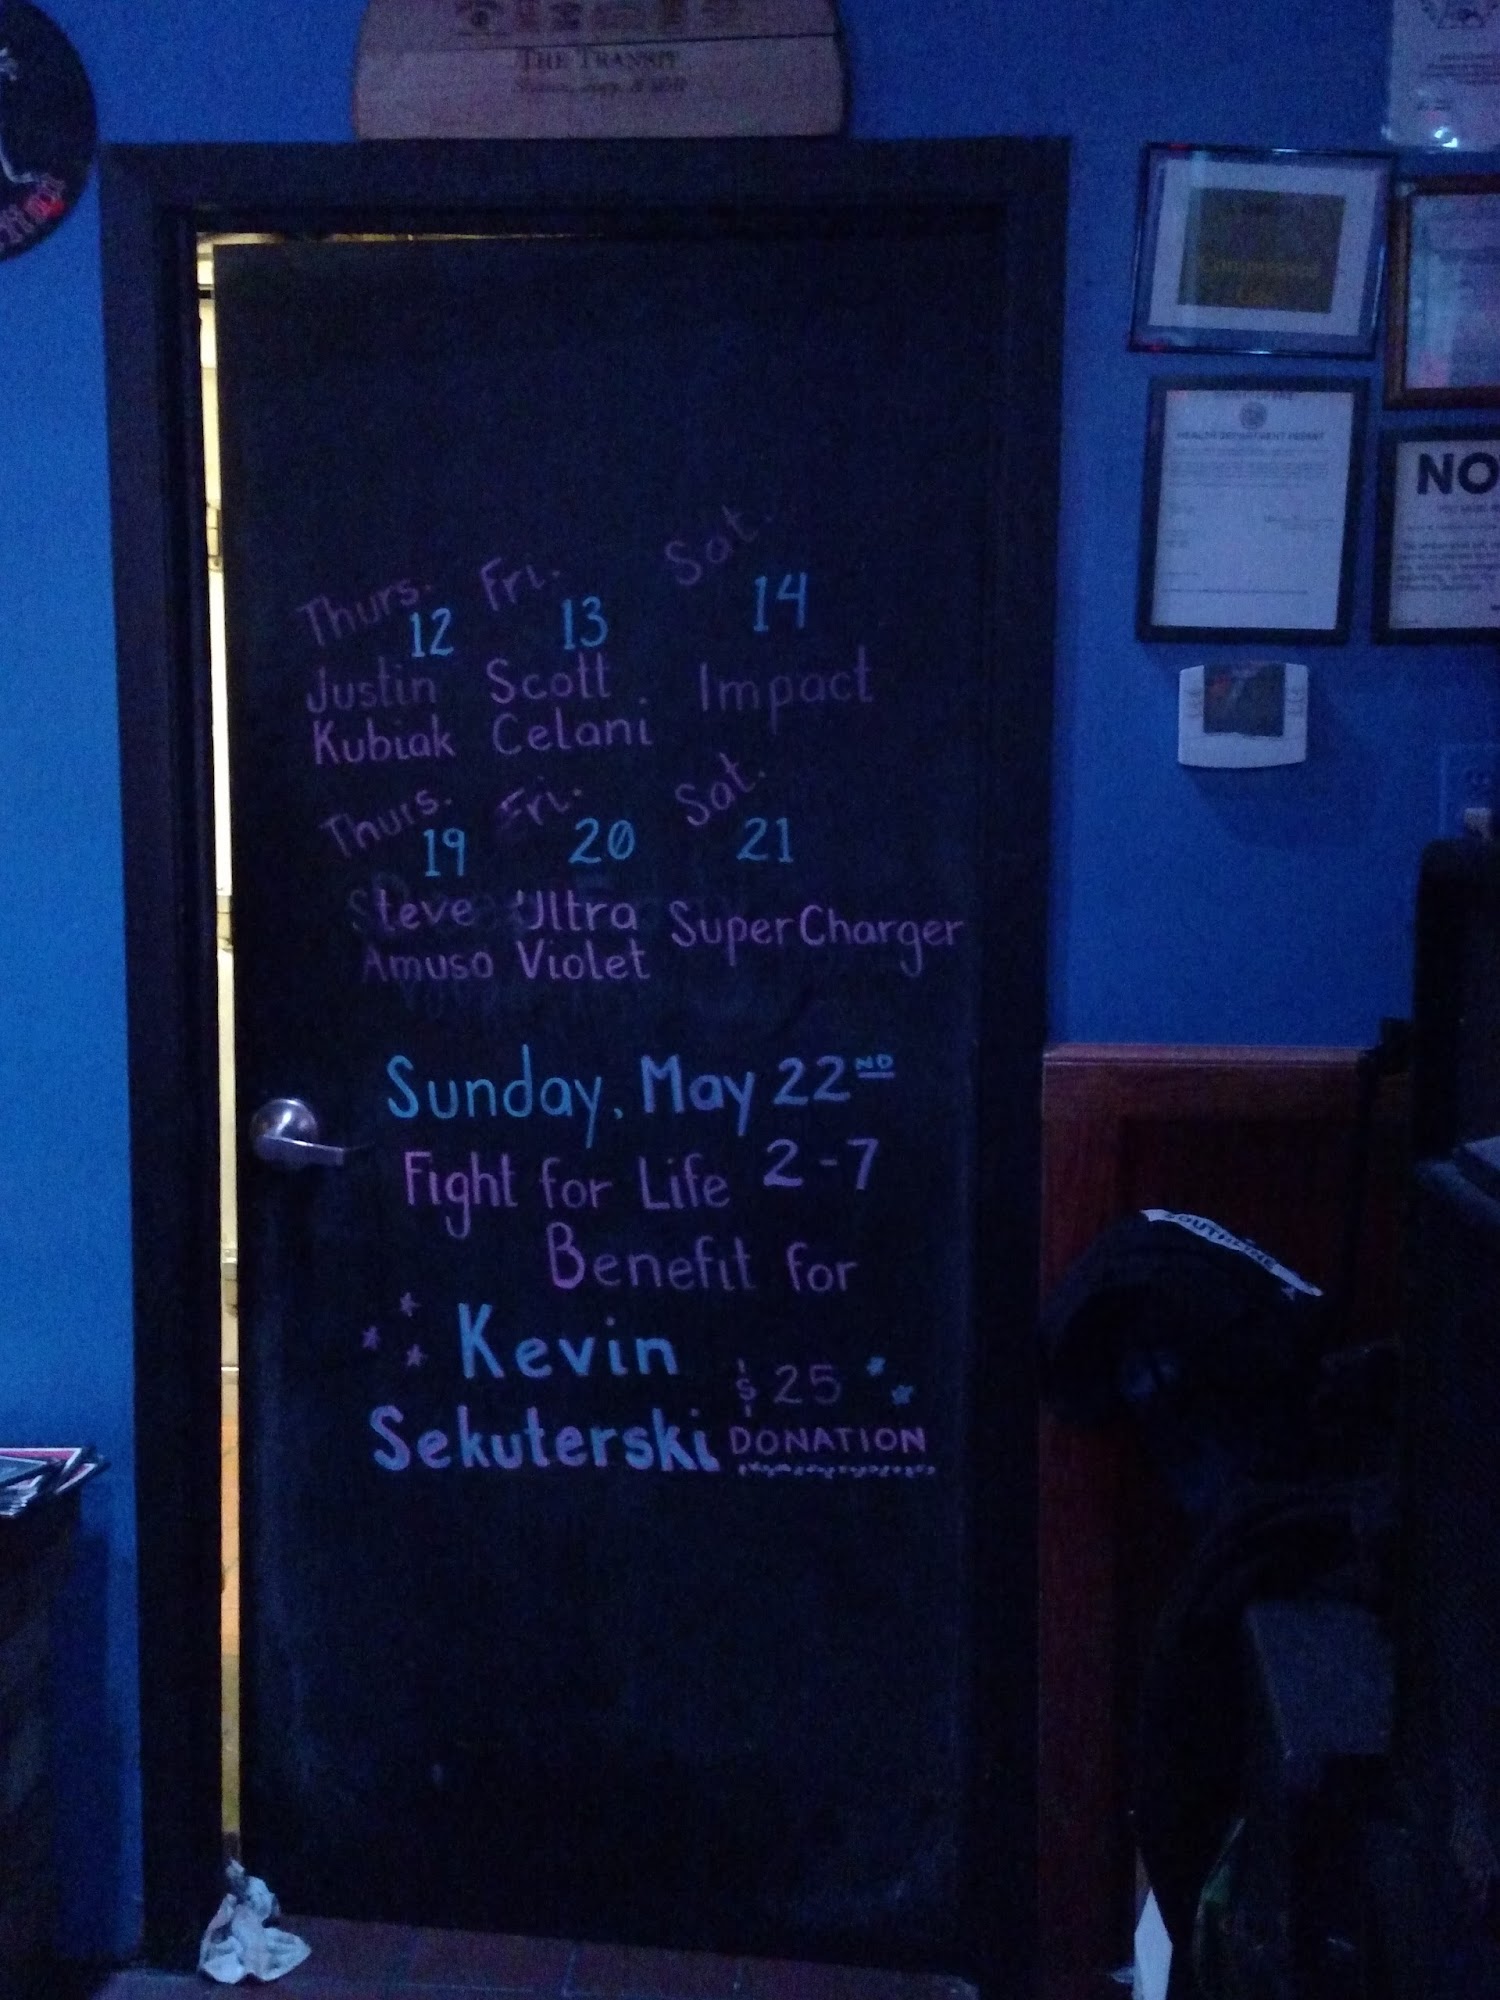 THE TRANSIT
Thurs. Fri. Sat.
12 13 14
Justin Scott Impact
Kubiak Celani
Thurs. Fri. Sat.
19 20 21
Steve Ultra SuperCharger
Amuso Violet
Sunday, May 22ND
Fight for Life 2-7
Benefit for
Kevin
$25
Sekuterski DONATION
Compressed
HEALTH DEPARTMENT PERMIT
NO